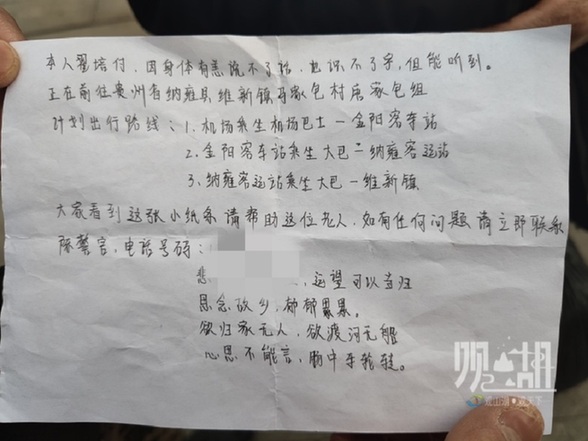 本人翟培付，因身体有恙说不了话，也识不了字，但能听到。
正在前往贵州省纳雍县维新镇马家包村唐家包组
计划出行路线：1. 机场乘坐机场巴士—金阳客车站
2. 金阳客车站乘坐大巴—纳雍客运站
3. 纳雍客运站乘坐大巴—维新镇
大家看到这张小纸条请帮助这位老人，如有任何问题请立即联系
陈警官，电话号码：
悲，远望可以当归
思念故乡，郁郁累累。
欲归家无人，欲渡河无船
心思不能言，肠中车轮转。
观湖